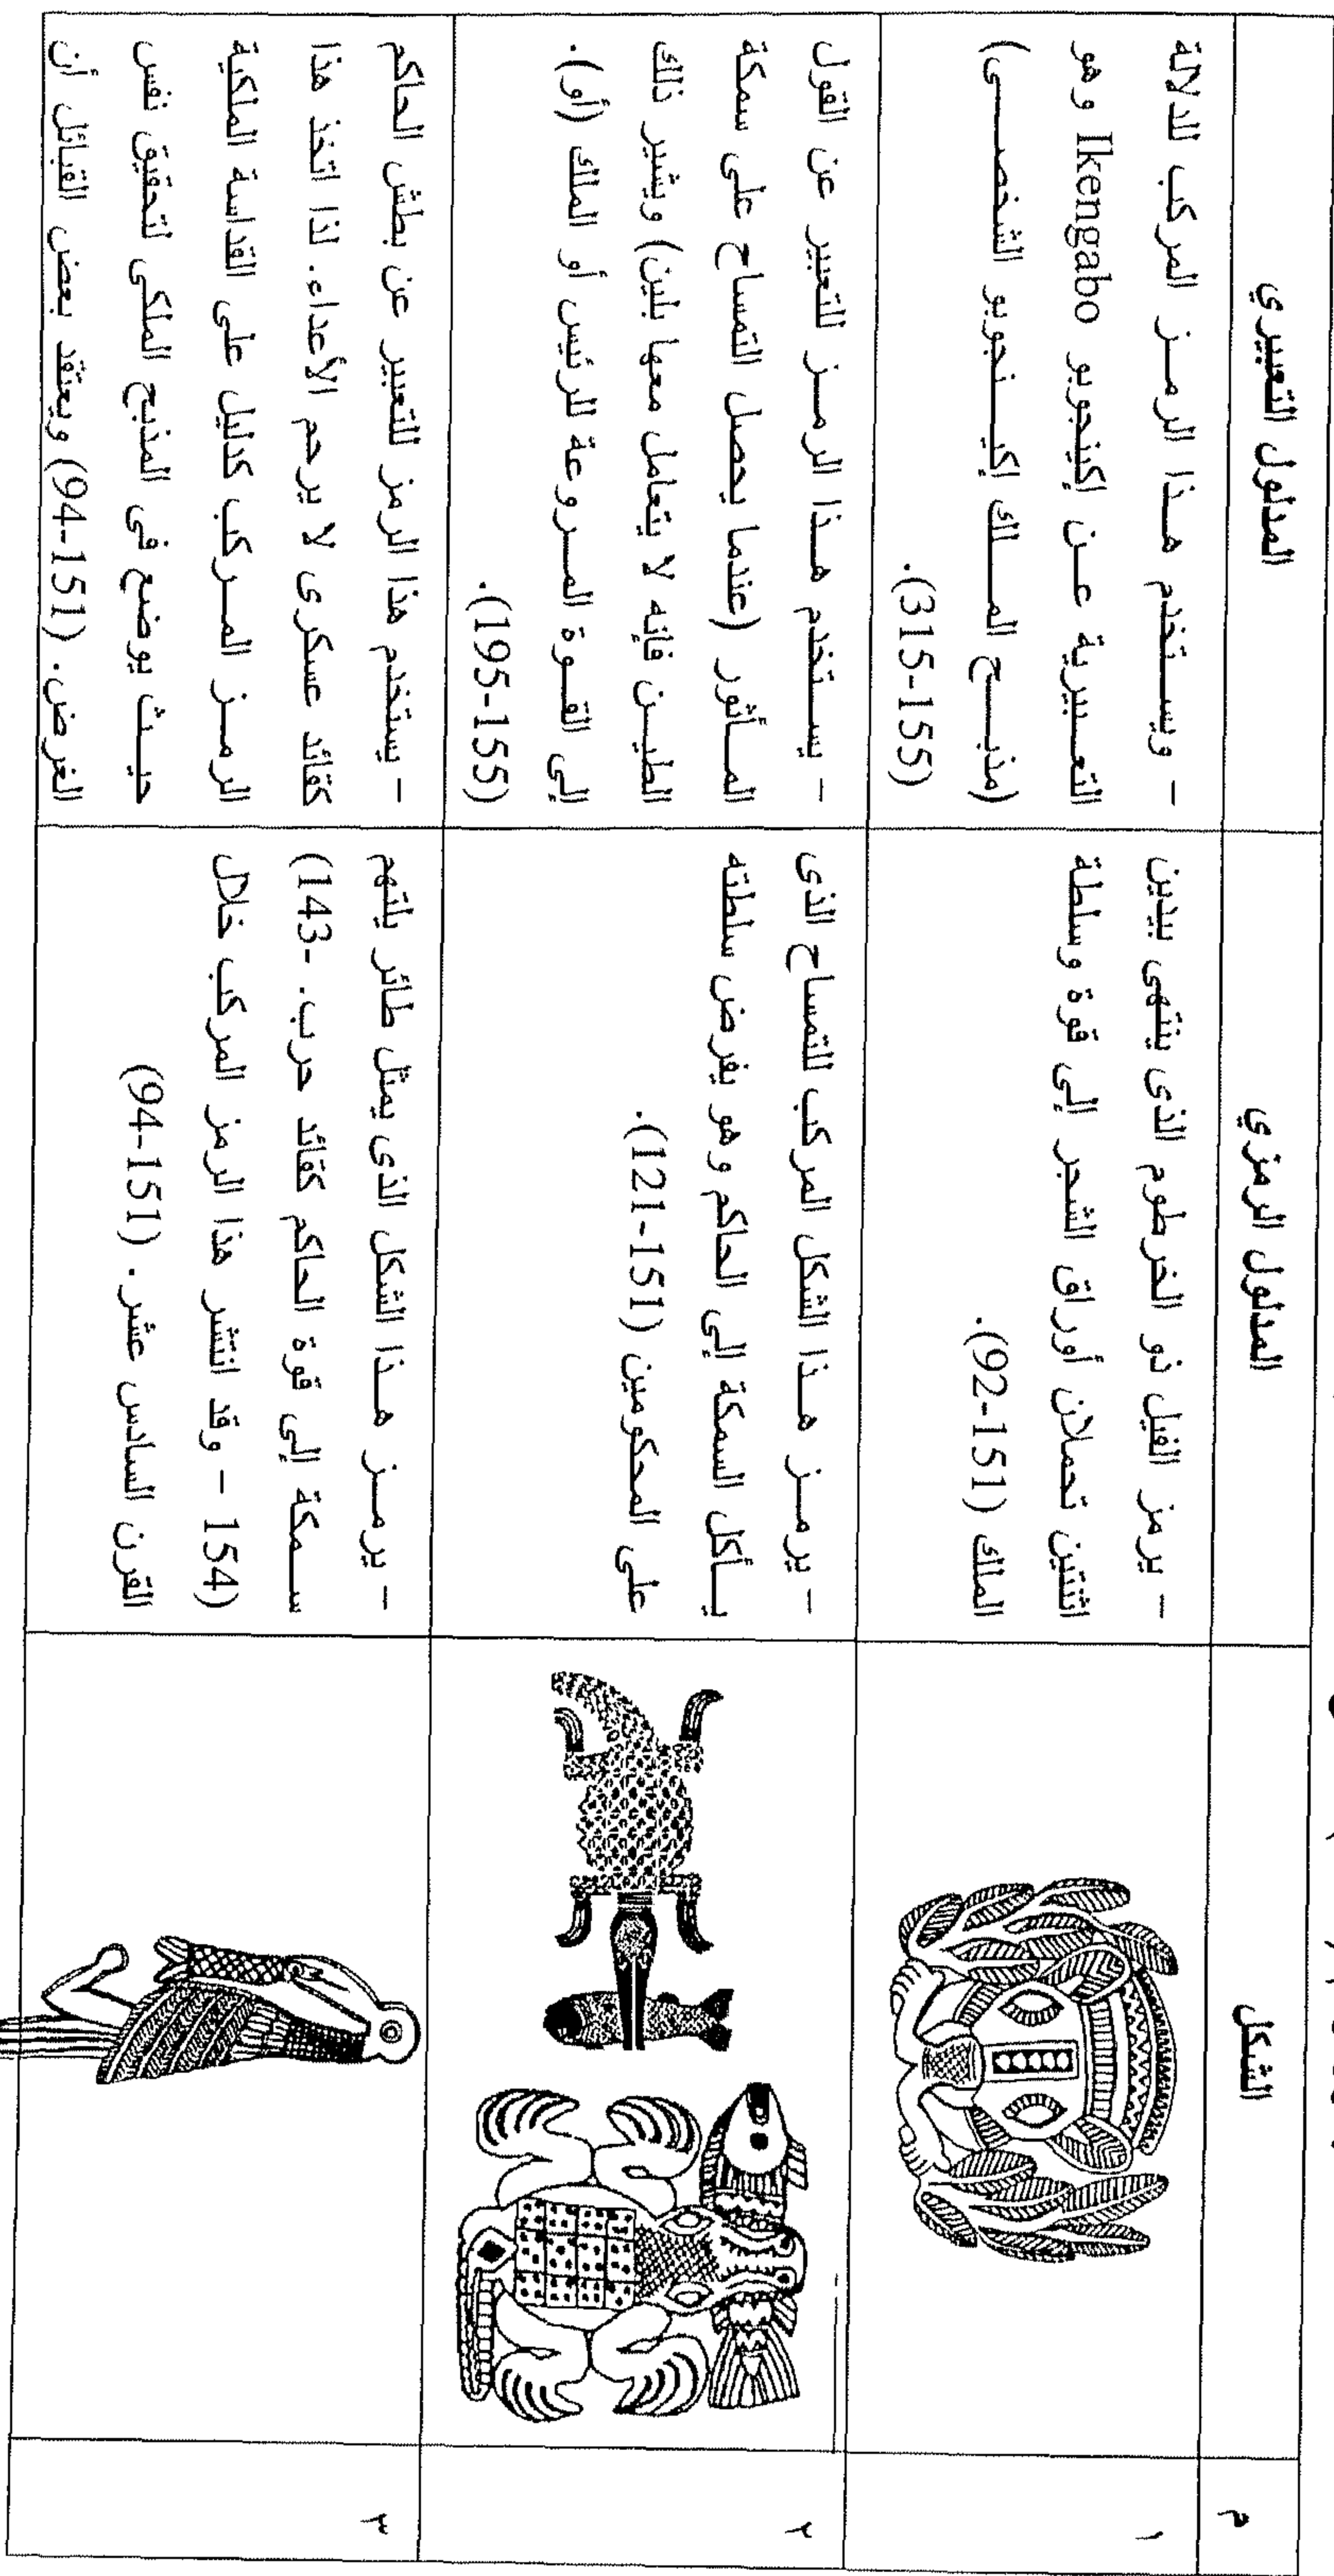 م
الشكل
المدلول الرمزي
المدلول التعبيري
١
- يرمز الفيل ذو الخرطوم الذى ينتهى بيدين
اثنتين تحملان أوراق الشجر إلى قوة وسلطة
الملك (151-92).
- ويستخدم هذا الرمز المركب للدلالة
التعبيرية عن إكينجوبو Ikengabo وهو
(مذبح الملك إكينجوبو الشخصى)
(155-315).
٢
- يرمز هذا الشكل المركب للتمساح الذى
يأكل السمكة إلى الحاكم وهو يفرض سلطته
على المحكومين (151-121).
- يستخدم هذا الرمز للتعبير عن القول
المأثور (عندما يحصل التمساح على سمكة
الطين فإنه لا يتعامل معها بلين) ويشير ذلك
إلى القوة المروعة للرئيس أو الملك (أو).
(155-195).
٣
- يرمز هذا الشكل الذى يمثل طائر يلتهم
سمكة إلى قوة الحاكم كقائد حرب. (143-
154) - وقد انتشر هذا الرمز المركب خلال
القرن السادس عشر. (151-94)
- يستخدم هذا الرمز للتعبير عن بطش الحاكم
كقائد عسكرى لا يرحم الأعداء. لذا اتخذ هذا
الرمز المركب كدليل على القداسة الملكية
حيث يوضع فى المذبح الملكى لتحقيق نفس
الغرض. (151-94) ويعتقد بعض القبائل أن